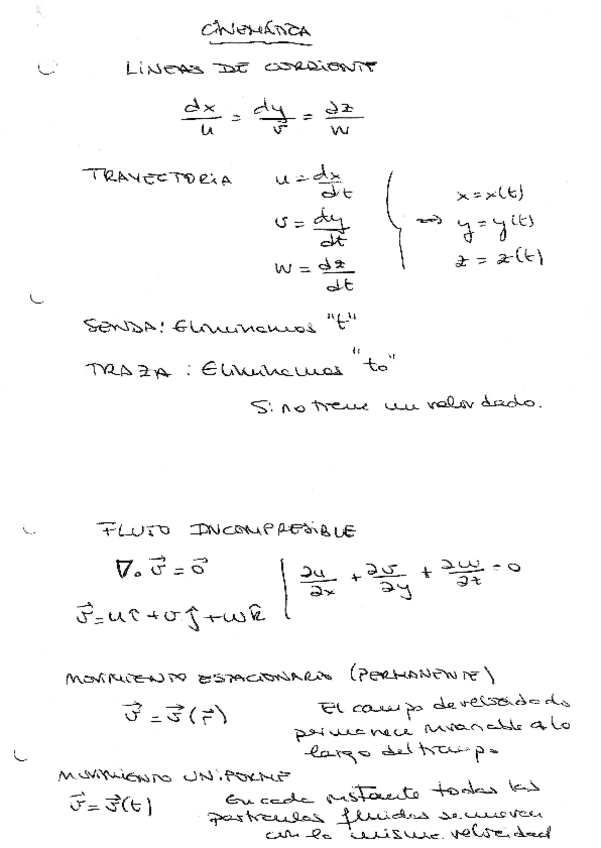 CINEMÁTICA
LINEAS DE CORRIENTE
dx/u = dy/v = dz/w
TRAYECTORIA u = dx/dt
v = dy/dt
w = dz/dt
⇒ x = x(t)
y = y(t)
z = z(t)
SENDA: Eliminamos "t"
TRAZA : Eliminamos "to"
Si no tiene un valor dado.
FLUJO INCOMPRESIBLE
∇ · v⃗ = 0⃗ | ∂u/∂x + ∂v/∂y + ∂w/∂z = 0
v⃗ = u î + v ĵ + w k̂
MOVIMIENTO ESTACIONARIO (PERMANENTE)
v⃗ = v⃗(r⃗) El campo de velocidades
permanece invariable a lo
largo del tiempo
MOVIMIENTO UNIFORME
v⃗ = v⃗(t) En cada instante todas las
partículas fluidas se mueven
con la misma velocidad